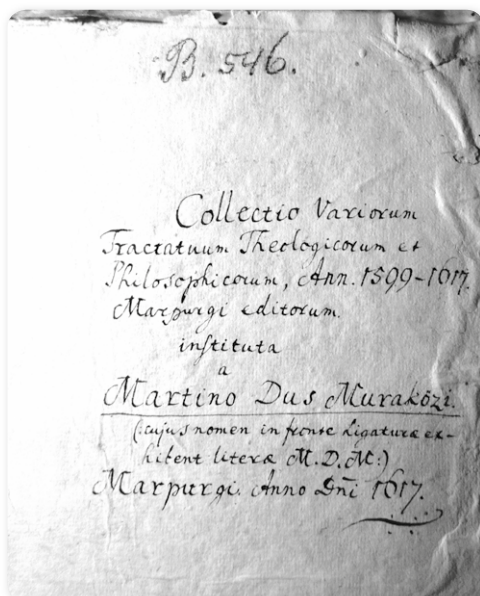 B. 546.
Collectio Variorum
Tractatuum Theologicorum et
Philosophicorum, Ann. 1599-1617.
Marpurgi editorum.
instituta
a
Martino Dus Muraközi.
(cujus nomen in fronte Ligaturæ ex-
hibent literæ M.D.M:)
Marpurgi. Anno Dn̄i 1617.